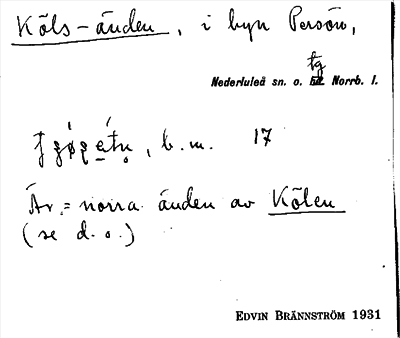 Köls-änden, i byn Persön,
tg
Nederluleå sn. o. Norrb. l.
b. m. 17
Är = norra änden av Kölen
(se d. o.)
EDVIN BRÄNNSTRÖM 1931